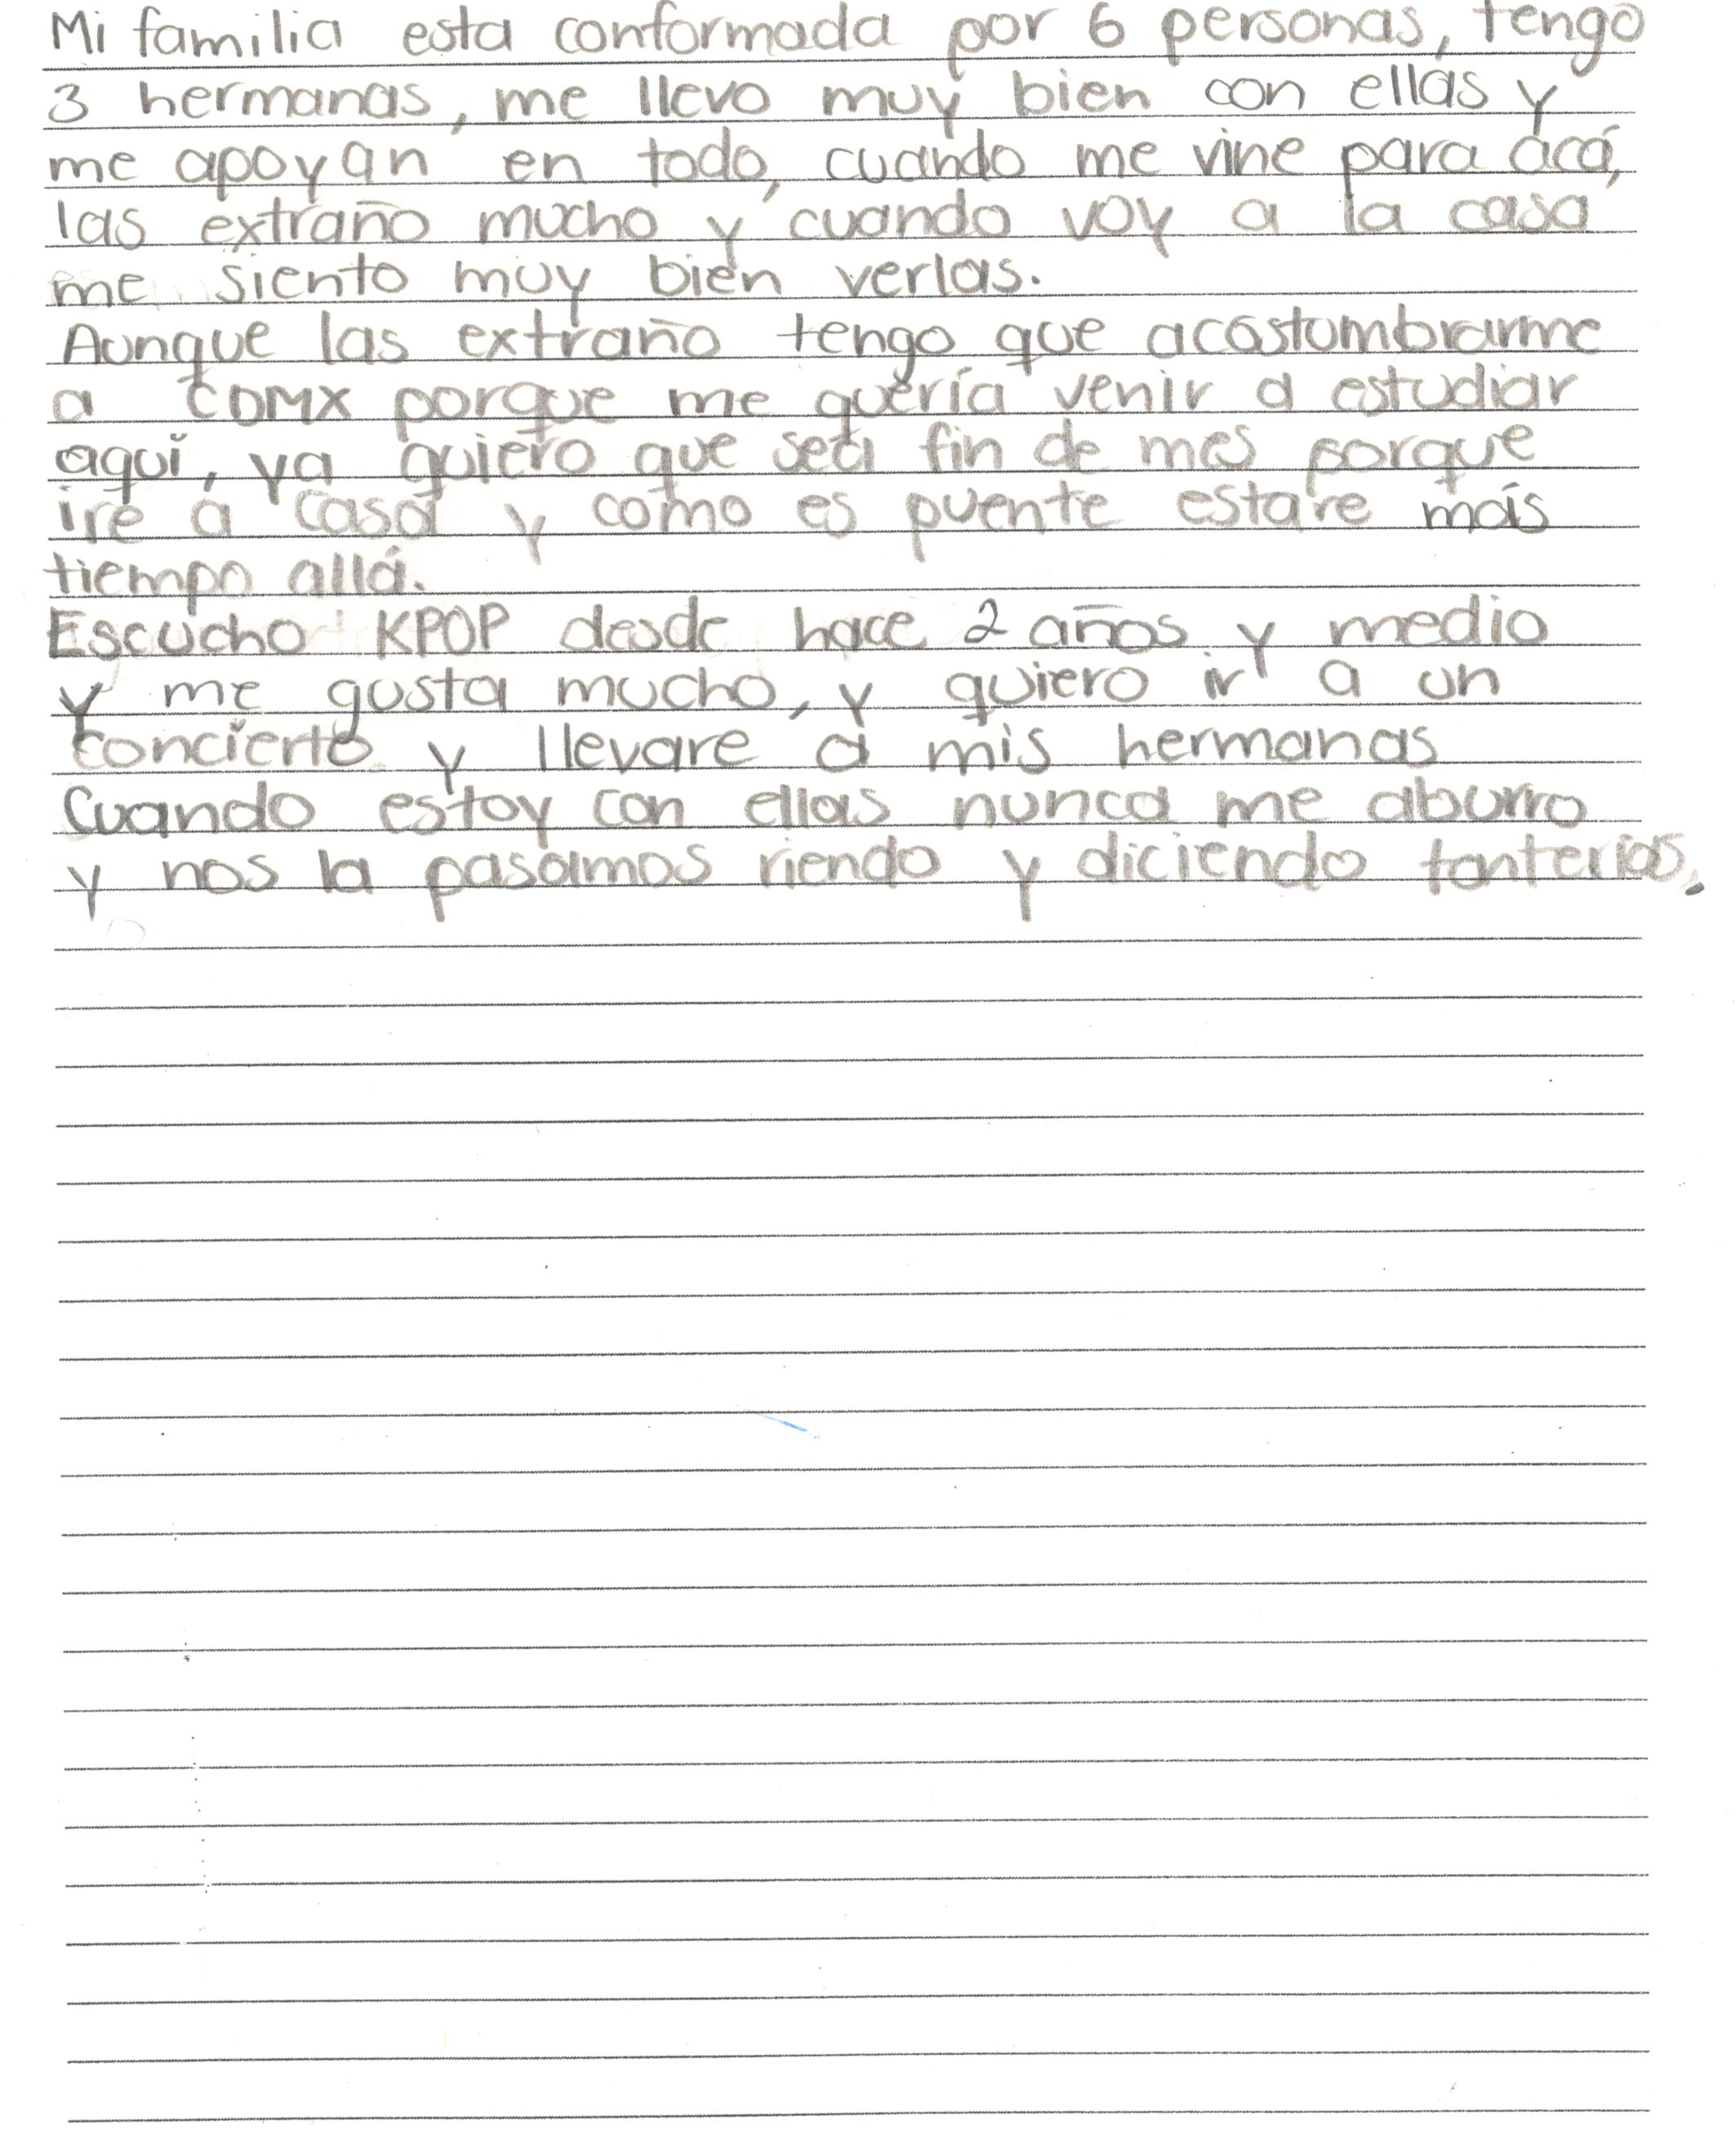 Mi familia esta conformada por 6 personas, tengo
3 hermanas, me llevo muy bien con ellas y
me apoyan en todo, cuando me vine para acá,
las extraño mucho y cuando voy a la casa
me siento muy bien verlas.
Aunque las extraño tengo que acostumbrarme
a CDMX porque me quería venir a estudiar
aquí, ya quiero que sea fin de mes porque
iré a casa y como es puente estare más
tiempo allá.
Escucho KPOP desde hace 2 años y medio
y me gusta mucho, y quiero ir a un
concierto y llevare a mis hermanas
Cuando estoy con ellas nunca me aburro
y nos la pasamos riendo y diciendo tonterias.